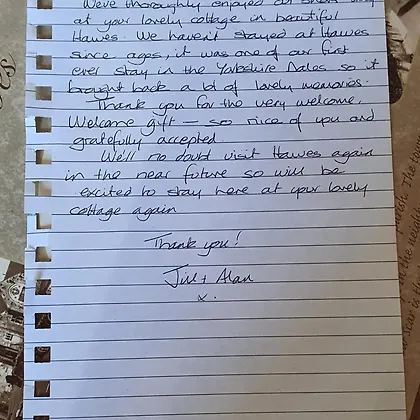 We've thoroughly enjoyed our short stay
at your lovely cottage in beautiful
Hawes. We haven't stayed at Hawes
since ages, it was one of our first
ever stay in the Yorkshire Dales so it
brought back a lot of lovely memories.
Thank you for the very welcome,
Welcome gift – so nice of you and
gratefully accepted
We'll no doubt visit Hawes again
in the near future so will be
excited to stay here at your lovely
cottage again
Thank you!
Jill + Alan
x.